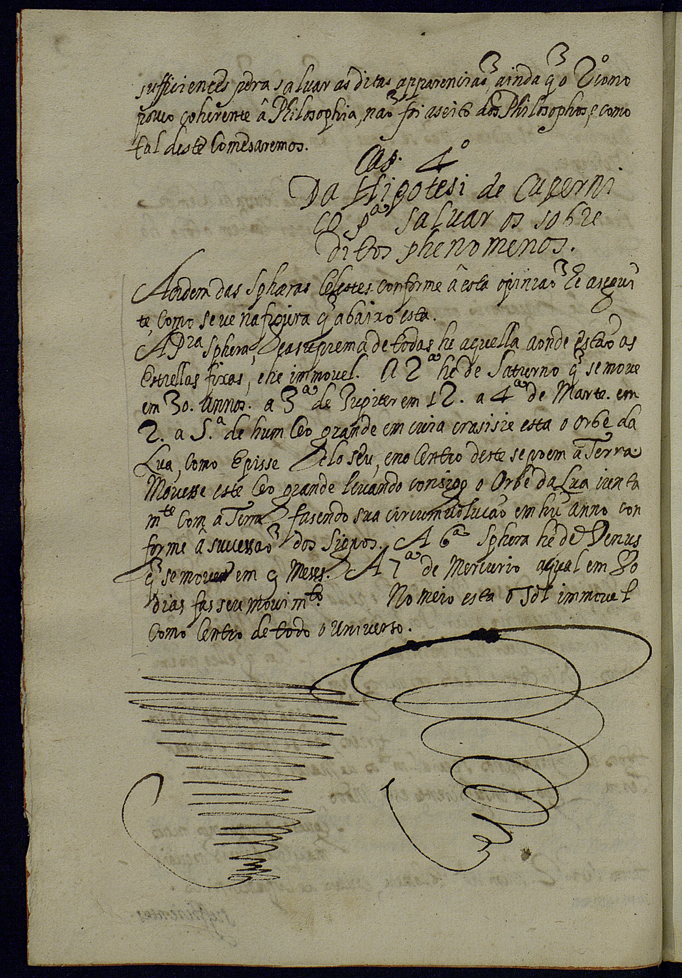 sufficientes pera saluar as ditas apparencias, ainda q̃ o 2º como
pouco coherente â Philosophia, naõ foi aseito dos Philosophos, e como
tal deste Comesaremos.
Cap. 4º
Da Hipotesi de Cuperni
co pª saluar os sobre
ditos phenomenos.
A ordem das Spharas Celestes conforme â esta opiniaõ he a segui
te, Como se ve na figura q̃ abaixo esta.
A pra Sphera e a suprema de todas he aquella aonde estaõ as
Estrellas fixas, e he immouel. A 2ª he de Saturno q̃ se moue
em 30. annos. a 3ª de Jupiter em 12. a 4ª de Marte. em
2. a 5.ª de hum Ceo grande em cuia crasisie esta o orbe da
Lua, como Episse clo seu, e no Centro deste se poem a Terra
Mouesse este Ceo grande leuando consigo o Orbe da Lua iunta
mte Com a Terra fasendo sua circumuoluçaõ em hũ anno con
forme â sucessaõ dos Signos. A 6ª Sphera he de Venus
q̃ se moue em 9 Meses. A 7ª de Mercurio aqual em 80
dias fas seu mouimto. No meio esta o Sol immouel
Como Centro de todo o uniuerso.